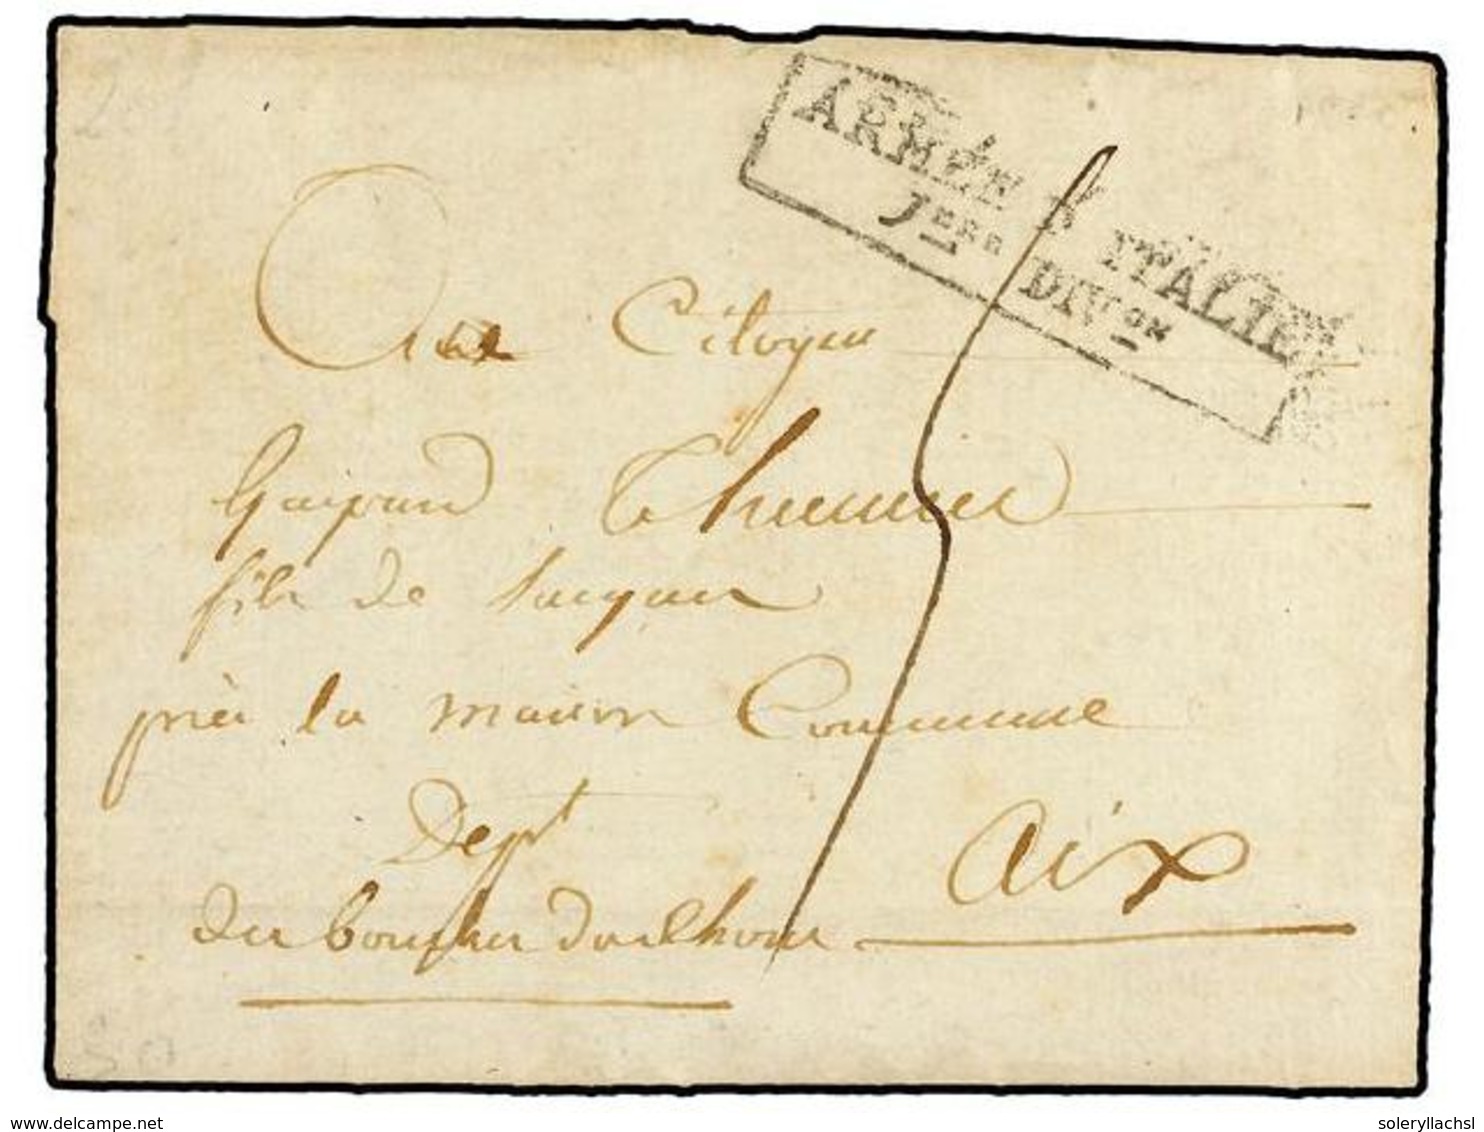 ARMÉE D' ITALIE
1ERE DIVON
5
Au Citoyen
Gaspard Thumin
fils de Jacques
près la maison Commune
Dept
Aix
du bouches du Rhone
delcampe.net
soleryllachsl